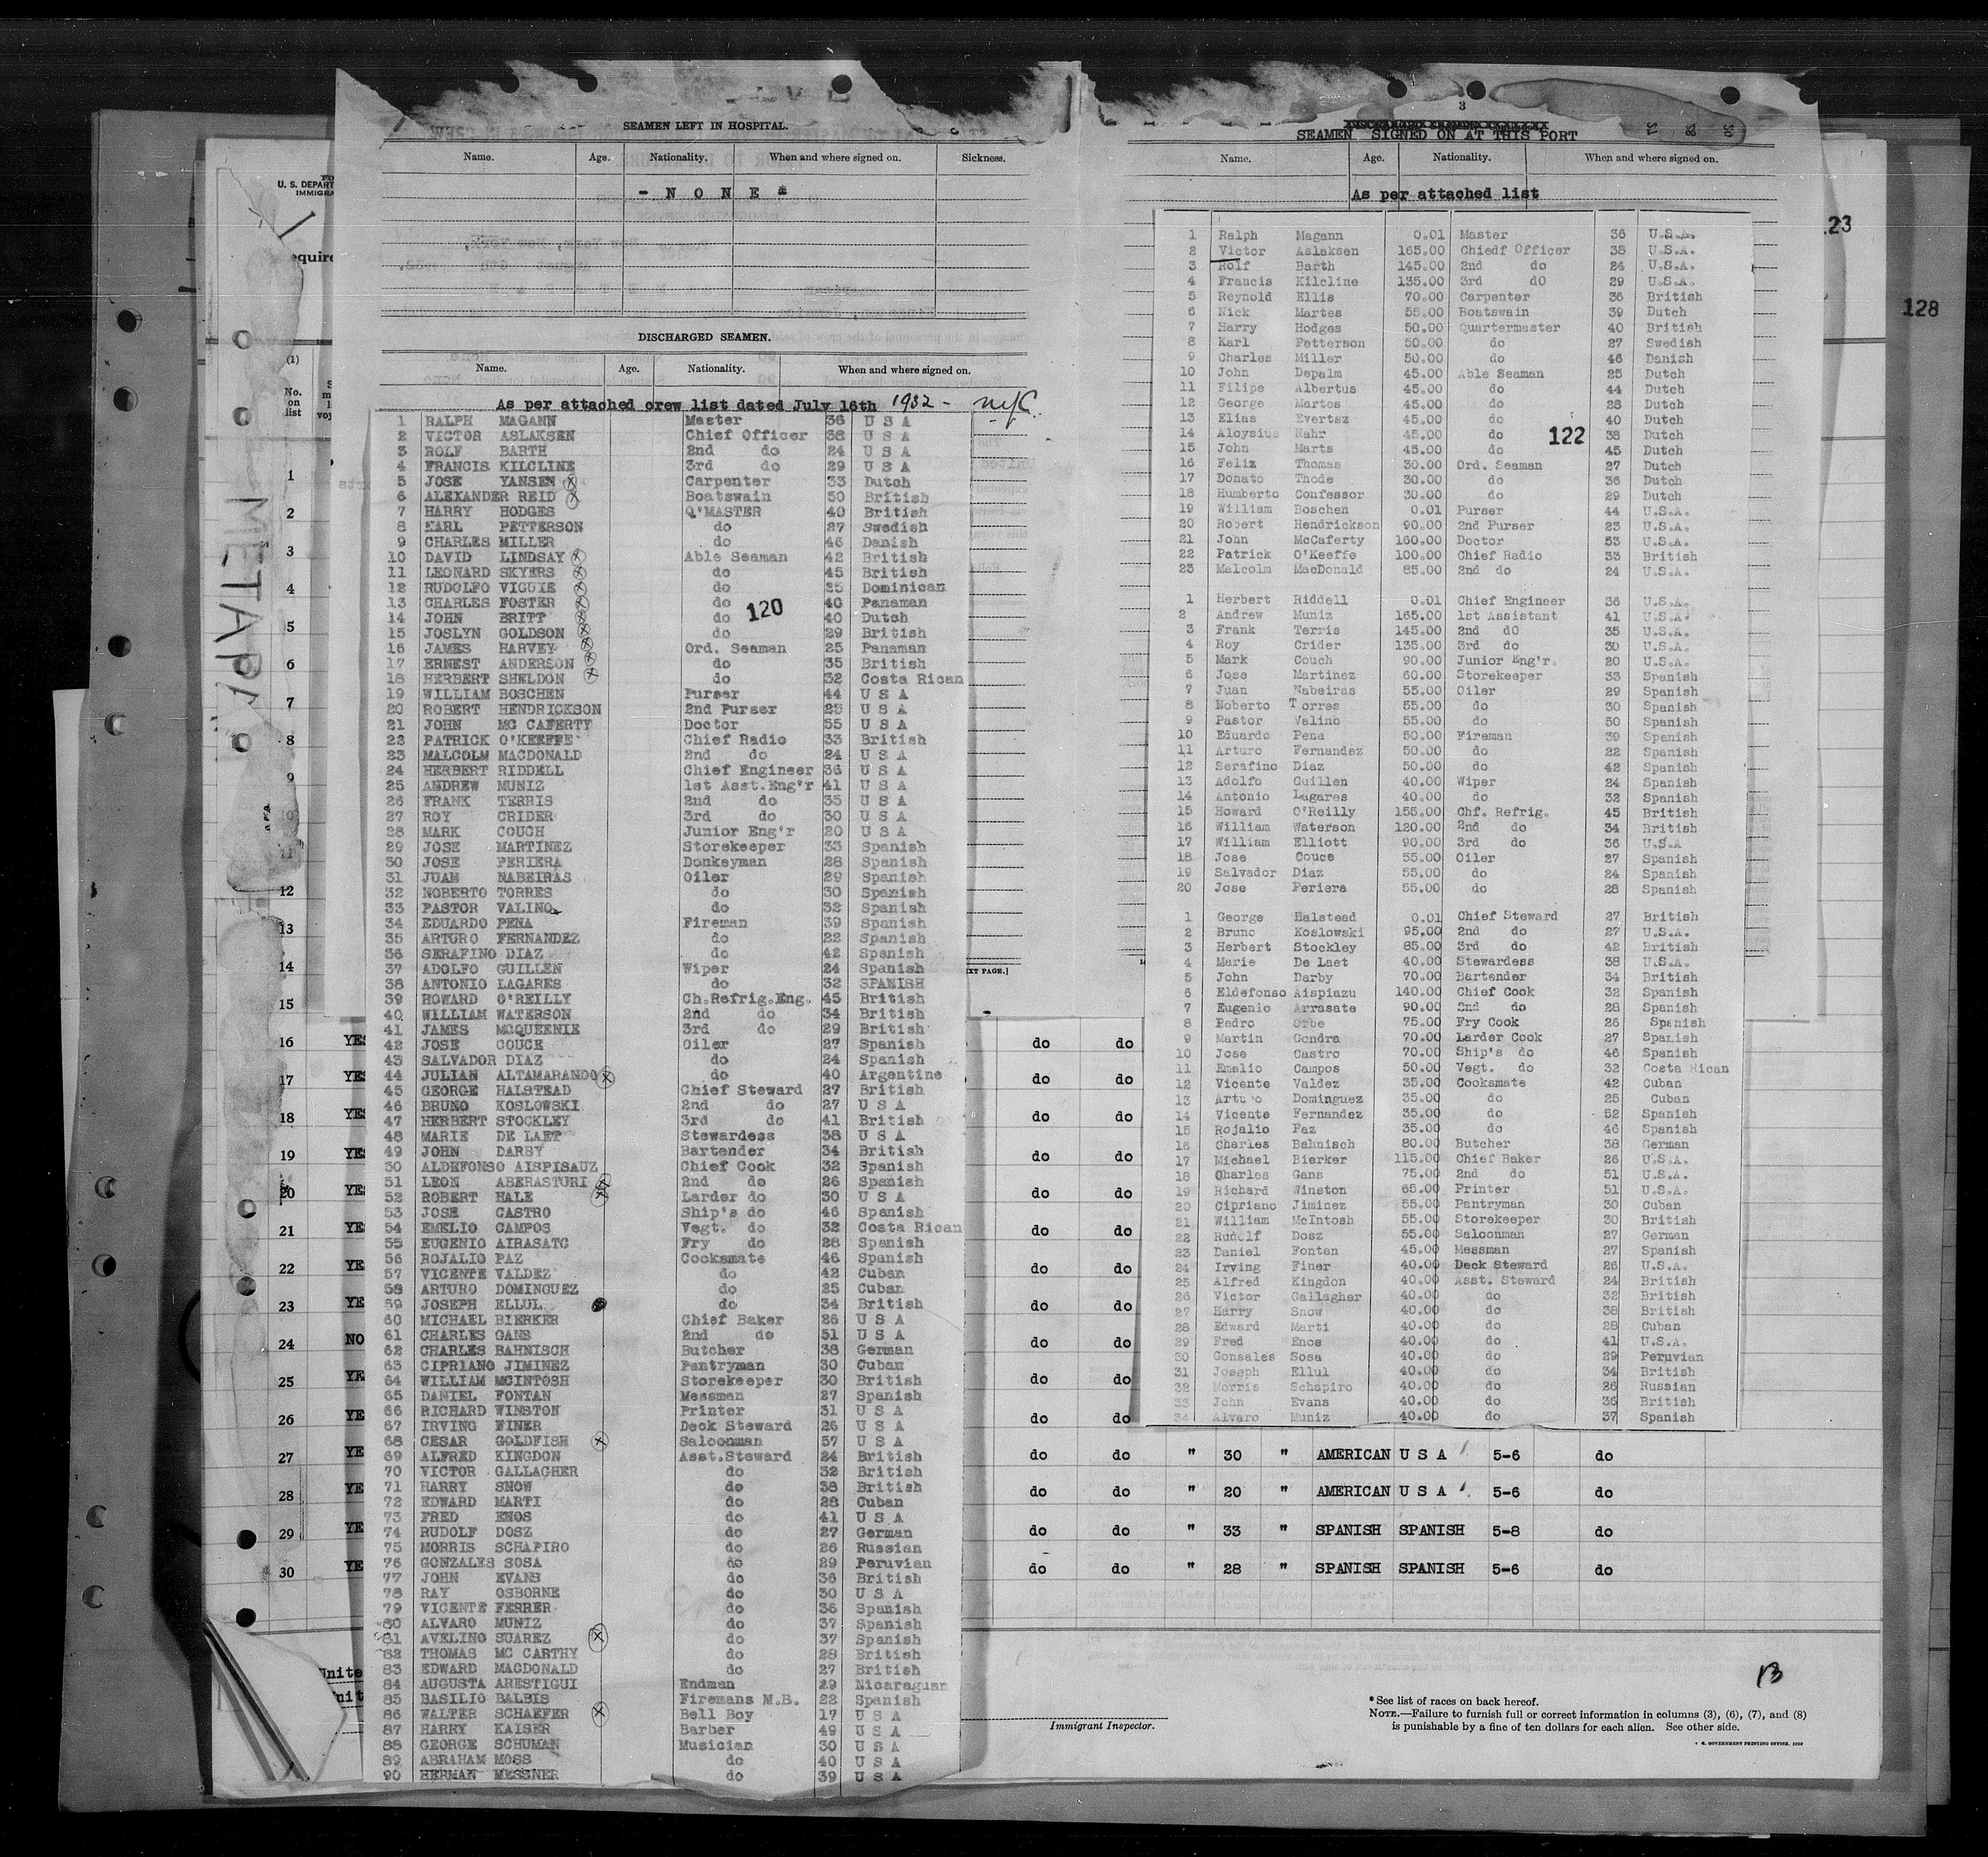 SEAMEN LEFT IN HOSPITAL.
Name. Age. Nationality. When and where signed on. Sickness.
- N O N E *
DISCHARGED SEAMEN.
Name. Age. Nationality. When and where signed on.
As per attached crew list dated July 16th 1932 -
1 RALPH MAGANN Master 36 U S A
2 VICTOR ASLAKSEN Chief Officer 38 U S A
3 ROLF BARTH 2nd do 24 U S A
4 FRANCIS KILCLINE 3rd do 29 U S A
5 JOSE YANSEN Carpenter 33 Dutch
6 ALEXANDER REID Boatswain 50 British
7 HARRY HODGES Q'MASTER 40 British
8 KARL PETTERSON do 27 Swedish
9 CHARLES MILLER do 46 Danish
10 DAVID LINDSAY Able Seaman 42 British
11 LEONARD SKYERS do 45 British
12 RUDOLFO VIGUIE do 25 Dominican
13 CHARLES FOSTER do 40 Panaman
120
14 JOHN BRITT do 40 Dutch
15 JOSLYN GOLDSON do 29 British
16 JAMES HARVEY Ord. Seaman 25 Panaman
17 ERNEST ANDERSON do 35 British
18 HERBERT SHELDON do 32 Costa Rican
19 WILLIAM BOSCHEN Purser 44 U S A
20 ROBERT HENDRICKSON 2nd Purser 23 U S A
21 JOHN MC CAFERTY Doctor 55 U S A
22 PATRICK O'KEEFFE Chief Radio 33 British
23 MALCOLM MACDONALD 2nd do 24 U S A
24 HERBERT RIDDELL Chief Engineer 36 U S A
25 ANDREW MUNIZ 1st Asst.Eng'r 41 U S A
26 FRANK TERRIS 2nd do 35 U S A
27 ROY CRIDER 3rd do 30 U S A
28 MARK COUCH Junior Eng'r 20 U S A
29 JOSE MARTINEZ Storekeeper 33 Spanish
30 JOSE PERIERA Donkeyman 28 Spanish
31 JUAN NABEIRAS Oiler 29 Spanish
32 NOBERTO TORRES do 30 Spanish
33 PASTOR VALINO do 32 Spanish
34 EDUARDO PENA Fireman 39 Spanish
35 ARTURO FERNANDEZ do 22 Spanish
36 SERAFINO DIAZ do 42 Spanish
37 ADOLFO GUILLEN Wiper 24 Spanish
38 ANTONIO LAGARES do 32 SPANISH
39 HOWARD O'REILLY Ch.Refrig.Eng. 45 British
40 WILLIAM WATERSON 2nd do 34 British
41 JAMES MCQUEENIE 3rd do 29 British
42 JOSE COUCE Oiler 27 Spanish
43 SALVADOR DIAZ do 24 Spanish
44 JULIAN ALTAMARANDO do 40 Argentine
45 GEORGE HALSTEAD Chief Steward 27 British
46 BRUNO KOSLOWSKI 2nd do 27 U S A
47 HERBERT STOCKLEY 3rd do 41 British
48 MARIE DE LAET Stewardess 38 U S A
49 JOHN DARBY Bartender 34 British
50 ALDEFONSO AISPISAUZ Chief Cook 32 Spanish
51 LEON ABERASTURI 2nd do 26 Spanish
52 ROBERT HALE Larder do 30 U S A
53 JOSE CASTRO Ship's do 46 Spanish
54 EMELIO CAMPOS Vegt. do 32 Costa Rican
55 EUGENIO AIRASATC Fry do 28 Spanish
56 ROJALIO PAZ Cooksmate 46 Spanish
57 VICENTE VALDEZ do 42 Cuban
58 ARTURO DOMINGUEZ do 25 Cuban
59 JOSEPH ELLUL do 34 British
60 MICHAEL BIERKER Chief Baker 26 U S A
61 CHARLES GANS 2nd do 51 U S A
62 CHARLES BAHNISCH Butcher 38 German
63 CIPRIANO JIMINEZ Pantryman 30 Cuban
64 WILLIAM MCINTOSH Storekeeper 30 British
65 DANIEL FONTAN Messman 27 Spanish
66 RICHARD WINSTON Printer 31 U S A
67 IRVING FINER Deck Steward 26 U S A
68 CESAR GOLDFISH Saloonman 57 U S A
69 ALFRED KINGDON Asst.Steward 24 British
70 VICTOR GALLAGHER do 32 British
71 HARRY SNOW do 38 British
72 EDWARD MARTI do 28 Cuban
73 FRED ENOS do 41 U S A
74 RUDOLF DOSZ do 27 German
75 MORRIS SCHAPIRO do 26 Russian
76 GONZALES SOSA do 29 Peruvian
77 JOHN EVANS do 36 British
78 RAY OSBORNE do 30 U S A
79 VICENTE FERRER do 36 Spanish
80 ALVARO MUNIZ do 37 Spanish
81 AVELINO SUAREZ do 37 Spanish
82 THOMAS MC CARTHY do 28 British
83 EDWARD MACDONALD do 27 British
84 AUGUSTA ARESTIGUI Endman 29 Nicaraguan
85 BASILIO BALBIS Firemans M.B. 22 Spanish
86 WALTER SCHAEFER Bell Boy 17 U S A
87 HARRY KAISER Barber 49 U S A
88 GEORGE SCHUMAN Musician 30 U S A
89 ABRAHAM MOSS do 40 U S A
90 HERMAN MESSNER do 39 U S A
3
SEAMEN SIGNED ON AT THIS PORT
Name. Age. Nationality. When and where signed on.
As per attached list
1 Ralph Magann 0.01 Master 36 U.S.A.
2 Victor Aslaksen 165.00 Chiedf Officer 38 U.S.A.
3 Rolf Barth 145.00 2nd do 24 U.S.A.
4 Francis Kilcline 135.00 3rd dO 29 U.S.A.
5 Reynold Ellis 70.00 Carpenter 36 British
6 Nick Martes 55.00 Boatswain 39 Dutch
7 Harry Hodges 50.00 Quartermaster 40 British
8 Karl Petterson 50.00 do 27 Swedish
9 Charles Miller 50.00 do 46 Danish
10 John Depalm 45.00 Able Seaman 25 Dutch
11 Filipe Albertus 45.00 do 44 Dutch
12 George Martes 45.00 do 28 Dutch
13 Elias Evertsz 45.00 do 40 Dutch
14 Aloysius Nahr 45.00 do 38 Dutch
122
15 John Marts 45.00 do 45 Dutch
16 Feliz Thomas 30.00 Ord. Seaman 27 Dutch
17 Donato Thode 30.00 do 36 Dutch
18 Humberto Confessor 30.00 do 29 Dutch
19 William Boschen 0.01 Purser 44 U.S.A.
20 Robert Hendrickson 90.00 2nd Purser 23 U.S.A.
21 John McCaferty 160.00 Doctor 53 U.S.A.
22 Patrick O'Keeffe 100.00 Chief Radio 33 British
23 Malcolm MacDonald 85.00 2nd do 24 U.S.A.
1 Herbert Riddell 0.01 Chief Engineer 36 U.S.A.
2 Andrew Muniz 165.00 1st Assistant 41 U.S.A.
3 Frank Terris 145.00 2nd dO 35 U.S.A.
4 Roy Crider 135.00 3rd do 30 U.S.A.
5 Mark Couch 90.00 Junior Eng'r. 20 U.S.A.
6 Jose Martinez 60.00 Storekeeper 33 Spanish
7 Juan Nabeiras 55.00 Oiler 29 Spanish
8 Noberto Torres 55.00 do 30 Spanish
9 Pastor Valino 55.00 do 50 Spanish
10 Eduardo Pena 50.00 Fireman 39 Spanish
11 Arturo Fernandez 50.00 do 22 Spanish
12 Serafino Diaz 50.00 do 42 Spanish
13 Adolfo Guillen 40.00 Wiper 24 Spanish
14 Antonio Lagares 40.00 do 32 Spanish
15 Howard O'Reilly 155.00 Chf. Refrig. 45 British
16 William Waterson 120.00 2nd do 34 British
17 William Elliott 90.00 3rd do 36 U.S.A
18 Jose Couce 55.00 Oiler 27 Spanish
19 Salvador Diaz 55.00 do 24 Spanish
20 Jose Periera 55.00 do 28 Spanish
1 George Halstead 0.01 Chief Steward 27 British
2 Bruno Koslowski 95.00 2nd do 27 U.S.A.
3 Herbert Stockley 85.00 3rd do 42 British
4 Marie De Laet 40.00 Stewardess 38 U.S.A.
5 John Darby 70.00 Bartender 34 British
6 Eldefonso Aispiazu 140.00 Chief Cook 32 Spanish
7 Eugenio Arrasate 90.00 2nd do 28 Spanish
8 Pedro Orbe 75.00 Fry Cook 26 Spanish
9 Martin Gondra 70.00 Larder Cook 27 Spanish
10 Jose Castro 70.00 Ship's do 46 Spanish
11 Emelio Campos 50.00 Vegt. do 32 Costa Rican
12 Vicente Valdez 35.00 Cooksmate 42 Cuban
13 Arturo Dominguez 35.00 do 25 Cuban
14 Vicente Fernandez 35.00 do 52 Spanish
15 Rojalio Paz 35.00 do 46 Spanish
16 Charles Bahnisch 80.00 Butcher 38 German
17 Michael Bierker 115.00 Chief Baker 26 U.S.A.
18 Charles Gans 75.00 2nd do 51 U.S.A.
19 Richard Winston 65.00 Printer 51 U.S.A.
20 Cipriano Jiminez 55.00 Pantryman 30 Cuban
21 William McIntosh 55.00 Storekeeper 30 British
22 Rudolf Dosz 55.00 Saloonman 27 German
23 Daniel Fontan 45.00 Messman 27 Spanish
24 Irving Finer 40.00 Deck Steward 26 U.S.A.
25 Alfred Kingdon 40.00 Asst. Steward 24 British
26 Victor Gallagher 40.00 do 32 British
27 Harry Snow 40.00 do 38 British
28 Edward Marti 40.00 do 28 Cuban
29 Fred Enos 40.00 do 41 U.S.A.
30 Gonsales Sosa 40.00 do 29 Peruvian
31 Joseph Ellul 40.00 do 34 British
32 Morris Schapiro 40.00 do 26 Russian
33 John Evans 40.00 do 36 British
34 Alvaro Muniz 40.00 do 37 Spanish
123
128
U. S. DEPART
IMMIGRA
equire
(1)
No. on list
METAPA
1
2
3
4
5
6
7
8
9
10
11
12
13
14
EXT PAGE.]
15
16 YES do do
17 YES do do
18 YES do do
19 YES do do
20 YES do do
21 YE do do
22 YE do do
23 YE do do
24 NO do do
25 YE do do
26 YE do do
27 YE do do " 30 " AMERICAN U S A 5-6 do
28 YE do do " 20 " AMERICAN U S A 5-6 do
29 YE do do " 33 " SPANISH SPANISH 5-8 do
30 YE do do " 28 " SPANISH SPANISH 5-6 do
Unite
Unit
13
Immigrant Inspector.
* See list of races on back hereof.
NOTE.—Failure to furnish full or correct information in columns (3), (6), (7), and (8)
is punishable by a fine of ten dollars for each alien. See other side.
GOVERNMENT PRINTING OFFICE